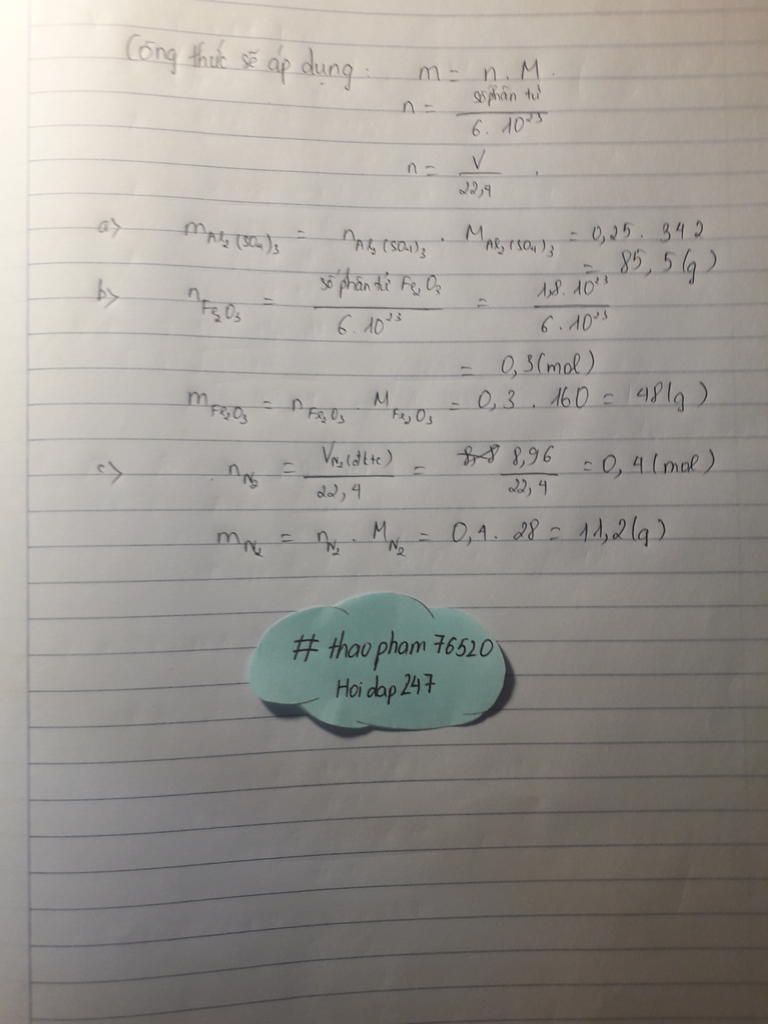 Công thức sẽ áp dụng: m = n . M.
n = số phân tử / 6. 10²³
n = V / 22,4 .
a> m Al₂(SO₄)₃ = n Al₂(SO₄)₃ . M Al₂(SO₄)₃ = 0,25 . 342
= 85,5(g)
b> n Fe₂O₃ = số phân tử Fe₂O₃ / 6. 10²³ = 1,8. 10²³ / 6. 10²³
= 0,3(mol)
m Fe₂O₃ = n Fe₂O₃ . M Fe₂O₃ = 0,3 . 160 = 48(g)
c> n N₂ = V N₂(đktc) / 22,4 = 8,96 / 22,4 = 0,4(mol)
m N₂ = n N₂ . M N₂ = 0,4. 28 = 11,2(g)
# thaopham76520
Hoidap247